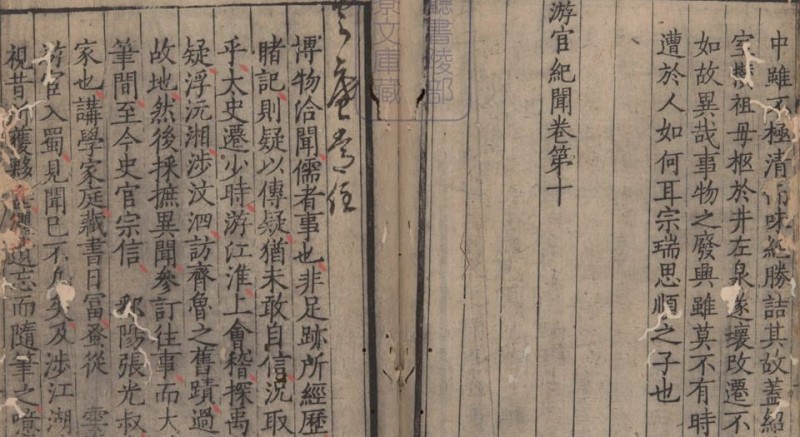 中雖不極清而味絶勝詰其故蓋紹
室攢祖母柩於井左泉遂壞改遷不
如故異哉事物之廢興雖莫不有時
遭於人如何耳宗瑞思順之子也
游宦紀聞卷第十
聽書陵部
京文庫藏
博物洽聞儒者事也非足跡所經歷
睹記則疑以傳疑猶未敢自信況取
乎太史遷少時游江淮上會稽探禹
疑浮沅湘涉汶泗訪齊魯之舊蹟過
故地然後採摭異聞參訂往事而大
筆間至今史官宗信 鄱陽張光叔
家也講學家庭藏書日富蚤從 雲
游宦入蜀見聞已不負矣及涉江湖
視昔所獲夥 遺忘而隨筆之噫